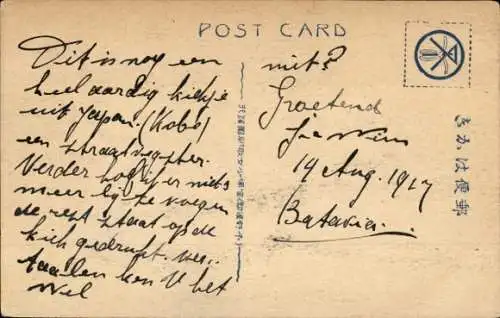 POST CARD
Dit is nog een
heel aardig kiekje
uit Japan. (Kobe)
een straatvegster.
Verder hoef er niets
meer bij te voegen
de rest staat op de
kiek gedrukt. Ver-
taalen kan U het
wel
niet?
Groetend
14 Aug. 1917
Batavia.
きかは便郵